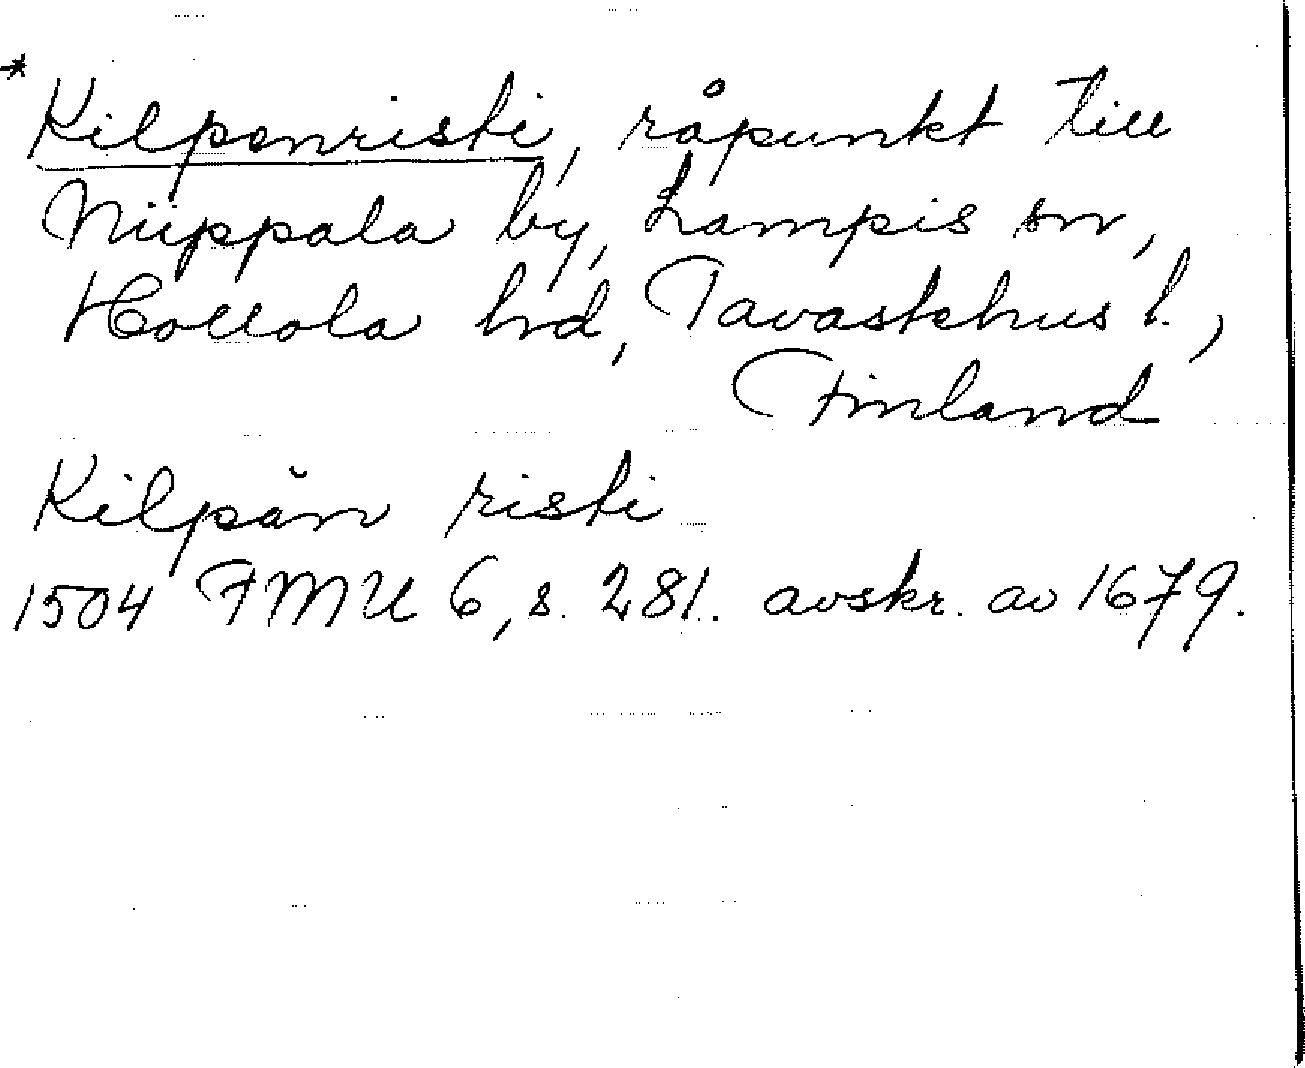 *Kilpenristi, råpunkt till
Niippala by, Lampis sn,
Hollola hd, Tavastehus l.,
Finland
Kilpăn risti
1504 FMU 6, s. 281. avskr. av 1679.